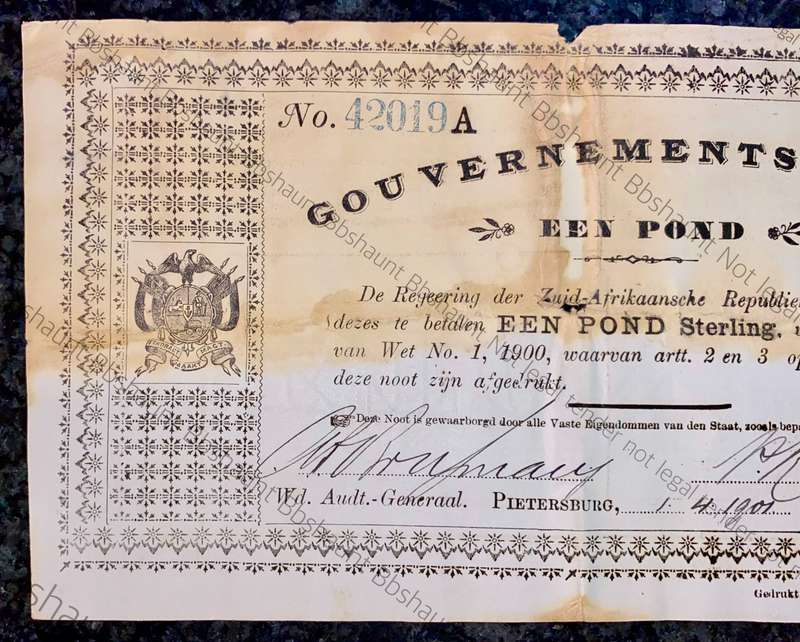 No. 42019 A
GOUVERNEMENTS
EEN POND
De Regeering der Zuid-Afrikaansche Republie
dezes te betalen EEN POND Sterling,
van Wet No. 1, 1900, waarvan artt. 2 en 3 op
deze noot zijn afgedrukt.
EENDRAGT MAAKT MAGT
Deze Noot is gewaarborgd door alle Vaste Eigendommen van den Staat, zooals bepa
Wd. Audt.-Generaal. PIETERSBURG, 1 4 1901
Gedrukt
Bbshaunt Not legal tender not legal tender